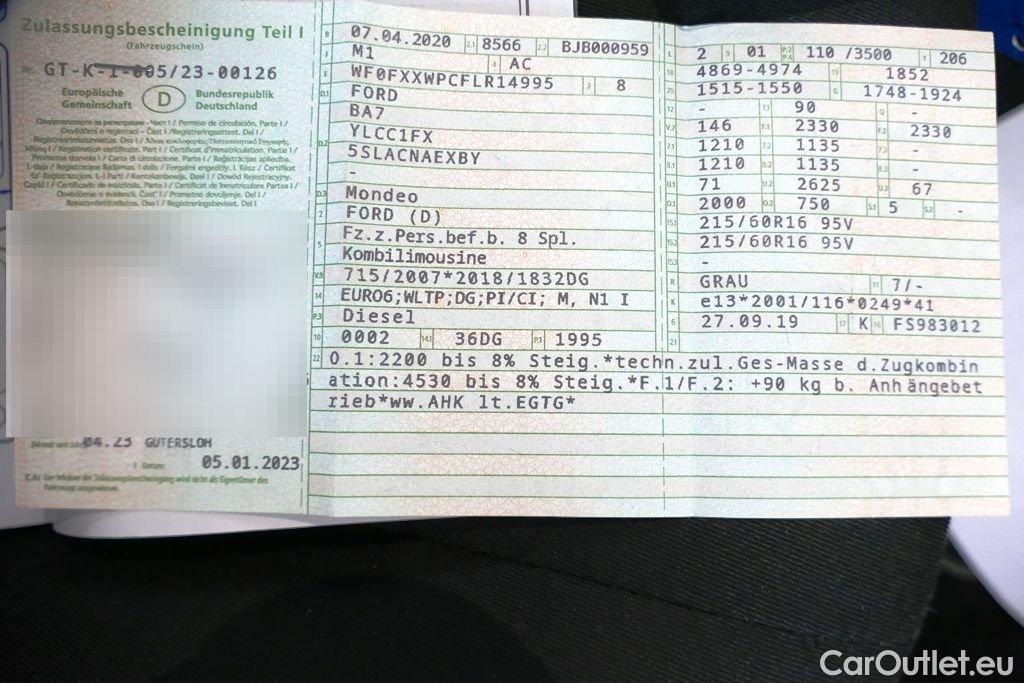 Zulassungsbescheinigung Teil I
(Fahrzeugschein)
Nr. GT-K-1-005/23-00126
Europäische Gemeinschaft
D
Bundesrepublik Deutschland
04.23 GÜTERSLOH
I Datum: 05.01.2023
B 07.04.2020 2.1 8566 2.2 BJB000959
J M1 4 AC
E WF0FXXWPCFLR14995 3 8
D.1 FORD
BA7
D.2 YLCC1FX
5SLACNAEXBY
-
D.3 Mondeo
2 FORD (D)
5 Fz.z.Pers.bef.b. 8 Spl.
Kombilimousine
V.9 715/2007*2018/1832DG
14 EURO6;WLTP;DG;PI/CI; M, N1 I
P.3 Diesel
10 0002 14.1 36DG P.1 1995
L 2 9 01 P.2 P.4 110 /3500 T 206
18 4869-4974 19 1852
20 1515-1550 G 1748-1924
12 - 13 90 Q -
V.7 146 F.1 2330 F.2 2330
7.1 1210 7.2 1135 7.3 -
8.1 1210 8.2 1135 8.3 -
U.1 71 U.2 2625 U.3 67
O.1 2000 O.2 750 S.1 5 S.2 -
15.1 215/60R16 95V
15.2 215/60R16 95V
15.3 -
R GRAU 11 7/-
K e13*2001/116*0249*41
6 27.09.19 17 K 16 FS983012
21
22 O.1:2200 bis 8% Steig.*techn.zul.Ges-Masse d.Zugkombin
ation:4530 bis 8% Steig.*F.1/F.2: +90 kg b. Anhängebet
rieb*ww.AHK lt.EGTG*
CarOutlet.eu